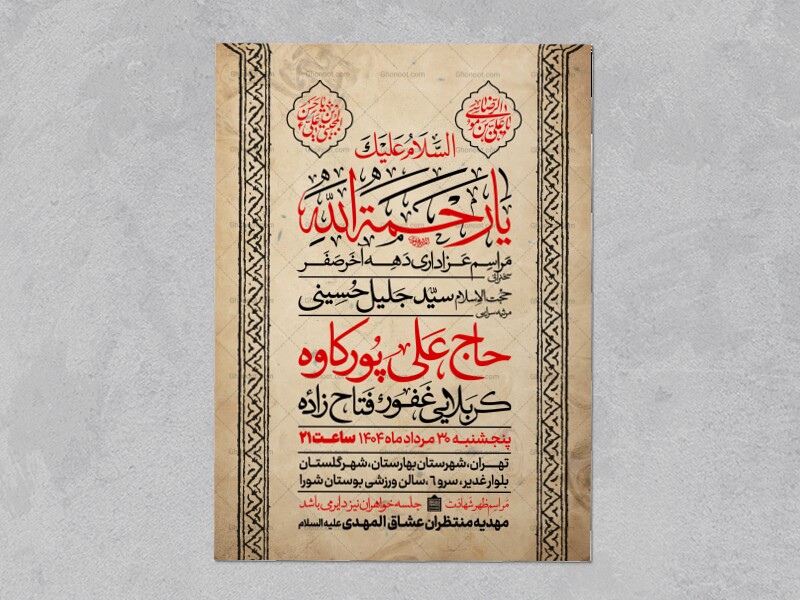 یا علی بن موسی الرضا
یا حسن بن علی المجتبی
السَّلامُ عَلَیْكَ
یا رَحْمَةَ اللهِ
مراسم عزاداری دهه آخر صفر
سخنرانی
حجت الاسلام سیّد جلیل حُسینی
مرثیه سرایی
حاج علی پورکاوه
کربلایی غفور فتاح زاده
پنجشنبه ۳۰ مرداد ماه ۱۴۰۴ ساعت ۲۱
تهران، شهرستان بهارستان، شهر گلستان
بلوار غدیر، سرو ٦، سالن ورزشی بوستان شورا
مراسم ظهر شهادت جلسه خواهران نیز دایر می باشد
مهدیه منتظران عشاق المهدی علیه السلام
Ghonoot.com